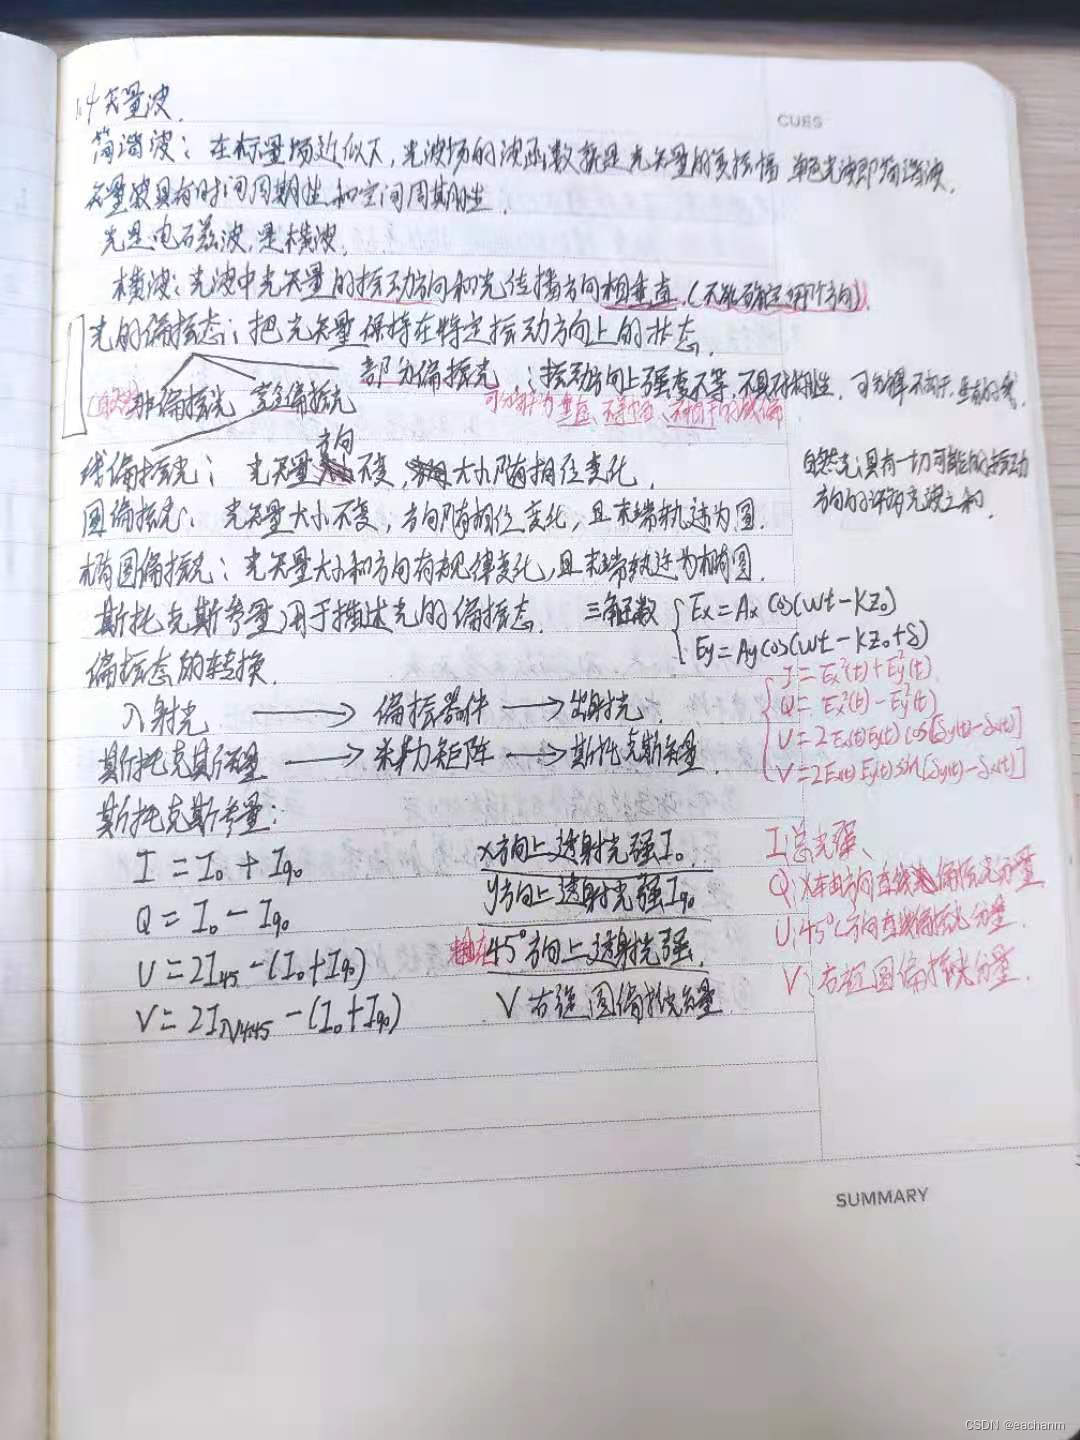 1.4 矢量波.
CUES
简谐波: 在标量场近似下, 光波场的波函数就是光矢量的复振幅 单色光波即简谐波.
矢量波具有时间周期性和空间周期性.
光是电磁波, 是横波.
横波: 光波中光矢量的振动方向和光传播方向相垂直. (不能确定哪个方向).
光的偏振态: 把光矢量保持在特定振动方向上的状态.
部分偏振光: 振动方向上强度不等, 不具对称性. 可分解
(自然光) 非偏振光 完全偏振光 可分解为垂直、不等幅、不相干的线偏
线偏振光: 光矢量方向不变, 大小随相位变化.
自然光: 具有一切可能的振动
方向的许多光波之和.
圆偏振光: 光矢量大小不变, 方向随相位变化, 且末端轨迹为圆.
椭圆偏振光: 光矢量大小和方向有规律变化, 且末端轨迹为椭圆.
斯托克斯参量用于描述光的偏振态. 三角函数 { Ex = Ax cos(wt - kz₀)
Ey = Ay cos(wt - kz₀ + δ)
偏振态的转换.
I = Ex²(t) + Ey²(t)
Q = Ex²(t) - Ey²(t)
U = 2Ex(t)Ey(t) cos[δy(t) - δx(t)]
V = 2Ex(t)Ey(t) sin[δy(t) - δx(t)]
入射光 → 偏振器件 → 出射光.
斯托克斯矢量 → 米勒矩阵 → 斯托克斯矢量.
斯托克斯参量:
I = I₀ + I₉₀
Q = I₀ - I₉₀
U = 2I₄₅ - (I₀ + I₉₀)
V = 2Iλ/4,45 - (I₀ + I₉₀)
x方向上透射光强I₀.
y方向上透射光强I₉₀
45°方向上透射光强.
V 右旋圆偏振光分量.
I: 总光强、
Q: x轴方向直线偏振光分量
U: 45°方向直线偏振光分量.
V: 右旋圆偏振光分量.
SUMMARY
CSDN @eachanm